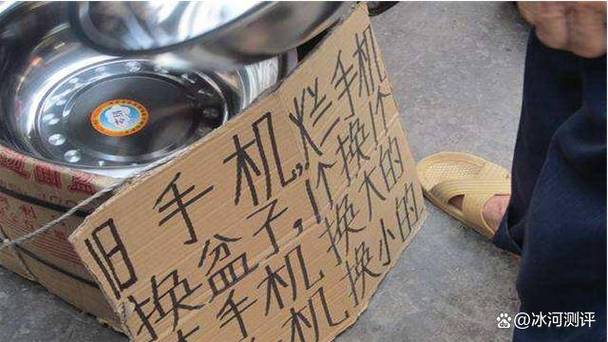 旧手机,烂手机
换盆子,1个换1个
手机换大的
机换小的
@冰河测评